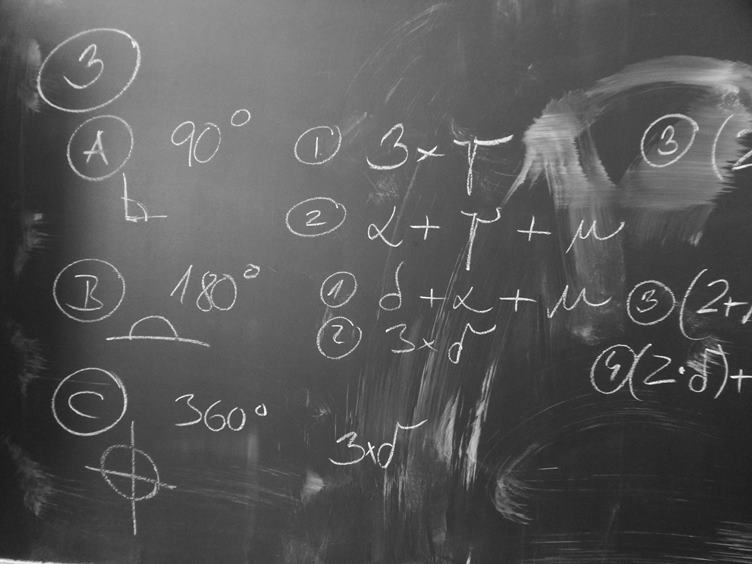 3
A 90° ① 3 × γ ③ (2
② α + γ + μ
B 180° ① δ + α + μ ③ (2+
② 3 × δ
④ (2·δ) +
C 360° 3×δ